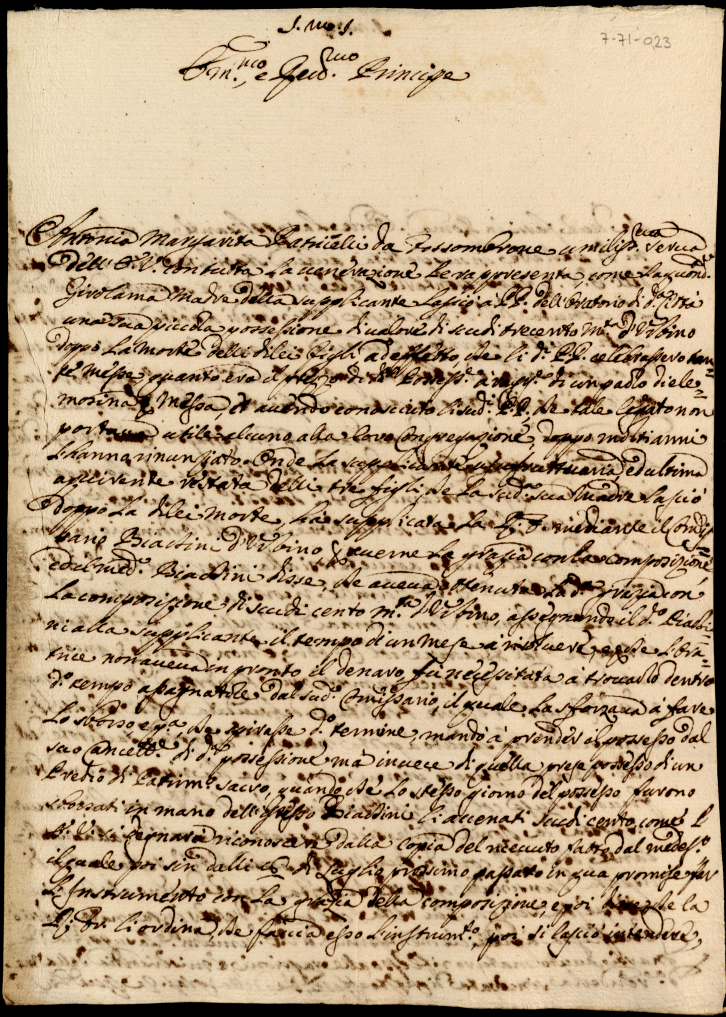 J. M. J.
7-71-023
Em.mo e Rev.mo Principe
Antonia Margarita Patricelli da Fossombrone umiliss.ma serva
dell' E. V. con tutta la venerazione le rapresenta, come la quond.
Girolama Madre della supplicante lasciò a PP. dell'Oratorio di d.a Città
una sua piccola possessione di valore di scudi trecento m.ta d'Urbino
doppo la morte delli di lei figli ad effetto che li d.i PP. celebrassero tan=
te messe, quanto era il di d.a Possess.e di un paolo di ele=
mosina messa, et avendo conosciuto li sud.i PP. che tale legato non
utile alcuno alla loro Congregazione, doppo molti anni
l'hanno rinunziato. Onde la supplicante usufruttuaria ed ultima
vivente restata delli tre figli, che la sud.a sua Madre lasciò
doppo la di lei morte, hà supplicata la R. F. mediante il
Biachini d'Urbino averne la grazia con la composizione
ed il med.o Biachini disse, che aveva ottenuta la d.a grazia con
la composizione di scudi cento m.ta d'Urbino, assegnando il d.o Biachi=
ni alla supplicante il tempo di un mese à risolvere, e che l'Ora=
trice non aveva in pronto il denaro, fu necessitata à trovarlo dentro
d.o tempo dal sud.o Comissario, il quale la sforzava à fare
lo sborso e pa, che spirasse d.o termine, mandò à prender il possesso dal
suo Cancell.e di d.a possessione, mà invece di quella prese possesso di un
Predio di Patrim.o sacro, quando che lo stesso giorno del possesso furono
sborsati in mano dell'istesso Biachini li accenati scudi cento, come l'
E. V. si degnarà riconoscere dalla copia del ricevuto fatto dal medes.o
il quale poi sin dalli 16 di Luglio prossimo passato in qua promise far
l'Instrumento con la grazia della composizione, e poi che la
R. F. li ordina, che faccia esso l'instrum.to, poi si lasciò intendere,